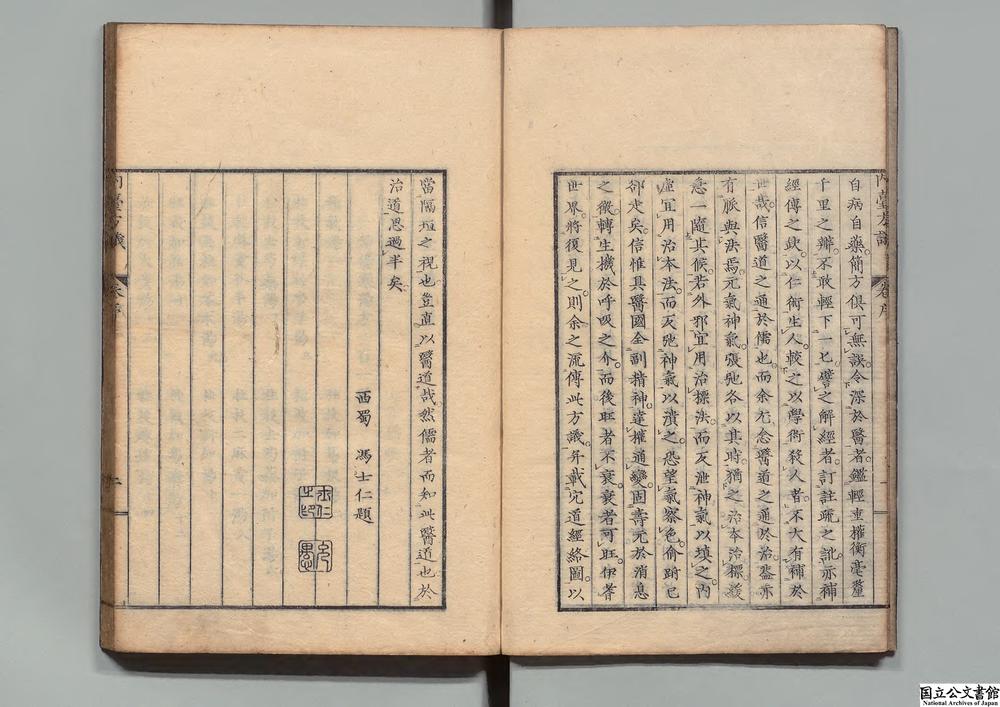 自病自藥簡方俱可無誤令深於醫者鑑輕重權衡毫釐
千里之辯不敢輕下一匕譬之解經者訂註疏之訛亦補
經傳之缺以仁術生人較之以學術殺人者不大有補於
世哉信醫道之通於儒也而余尤念醫道之通於治蓋亦
有脈與法焉元氣神氣張弛各以其時猶之治本治標緩
急一隨其候若外邪宜用治標法而反泄神氣以填之內
虛宜用治本法而反弛神氣以潰之恐望氣察色俞跗已
卻走矣信惟具醫國全副精神達權通變固壽元於消息
之微轉生機於呼吸之介而後旺者不衰衰者可旺伊耆
世界將復見之則余之流傳此方議并載穴道經絡圖以
當隔垣之視也豈直以醫道哉然儒者而知此醫道也於
治道思過半矣
西蜀 馮士仁題
士仁之印
內臺方議
序
二
国立公文書館
National Archives of Japan